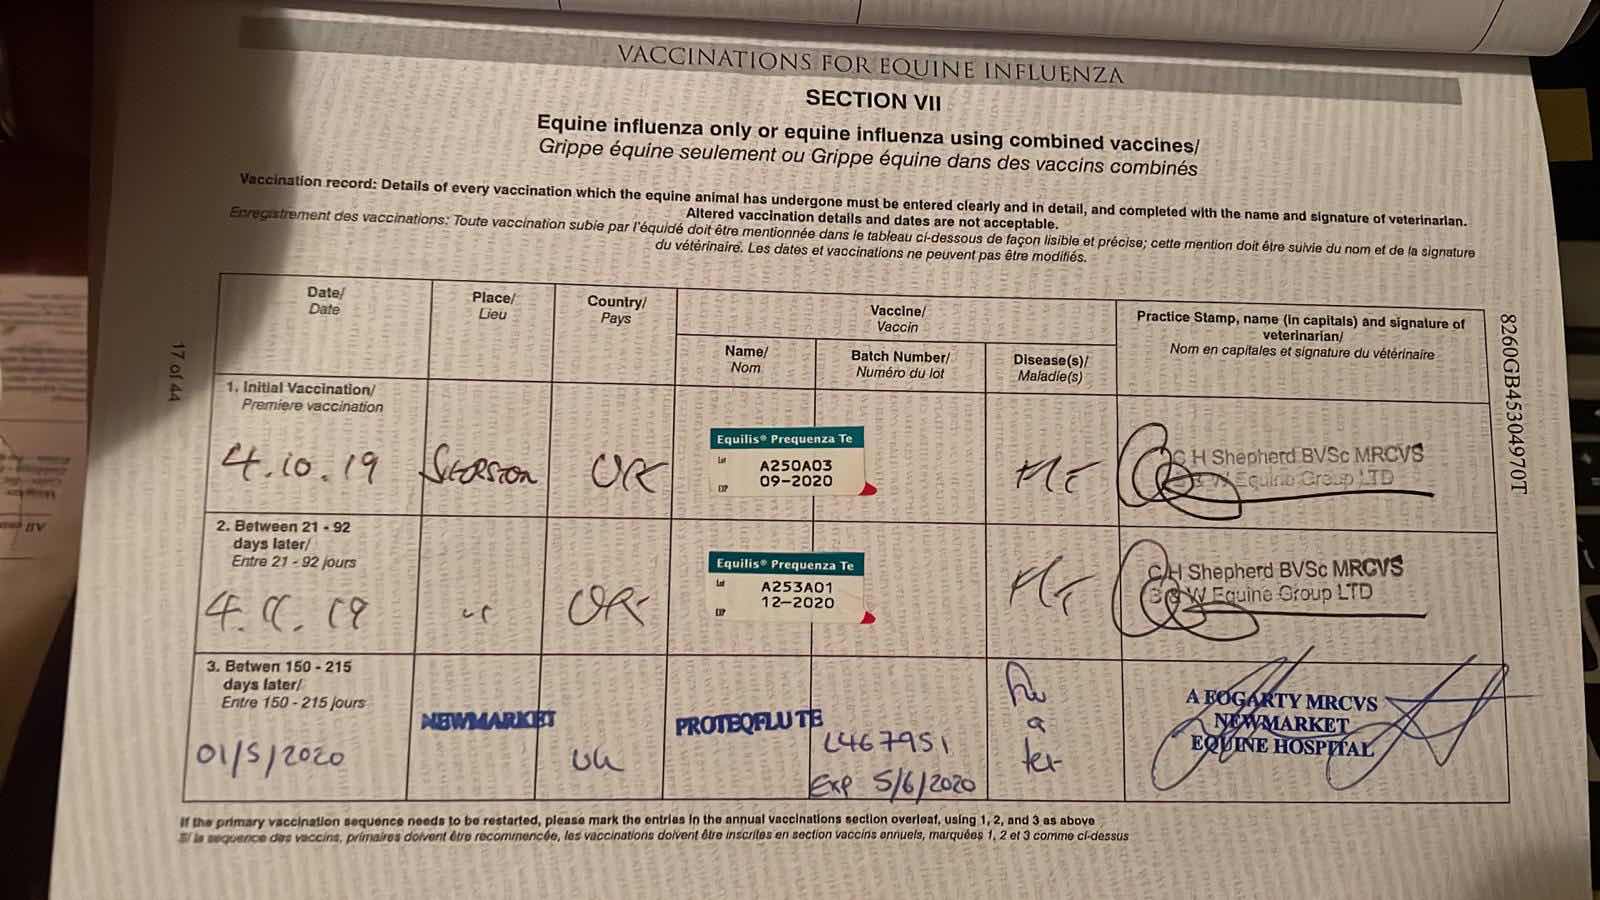 VACCINATIONS FOR EQUINE INFLUENZA
SECTION VII
Equine influenza only or equine influenza using combined vaccines/
Grippe équine seulement ou Grippe équine dans des vaccins combinés
Vaccination record: Details of every vaccination which the equine animal has undergone must be entered clearly and in detail, and completed with the name and signature of veterinarian.
Altered vaccination details and dates are not acceptable.
Enregistrement des vaccinations: Toute vaccination subie par l'équidé doit être mentionnée dans le tableau ci-dessous de façon lisible et précise; cette mention doit être suivie du nom et de la signature
du vétérinaire. Les dates et vaccinations ne peuvent pas être modifiés.
Date/
Date
Place/
Lieu
Country/
Pays
Vaccine/
Vaccin
Name/
Nom
Batch Number/
Numéro du lot
Disease(s)/
Maladie(s)
Practice Stamp, name (in capitals) and signature of
veterinarian/
Nom en capitales et signature du vétérinaire
1. Initial Vaccination/
Premiere vaccination
4.10.19
UK
Equilis® Prequenza Te
Lot
A250A03
09-2020
EXP
C H Shepherd BVSc MRCVS
B & W Equine Group LTD
2. Between 21 - 92
days later/
Entre 21 - 92 jours
UK
Equilis® Prequenza Te
Lot
A253A01
12-2020
EXP
C H Shepherd BVSc MRCVS
B & W Equine Group LTD
3. Betwen 150 - 215
days later/
Entre 150 - 215 jours
01/5/2020
NEWMARKET
UK
PROTEQFLU TE
L467951
Exp 5/6/2020
flu
a
tet
A FOGARTY MRCVS
NEWMARKET
EQUINE HOSPITAL
If the primary vaccination sequence needs to be restarted, please mark the entries in the annual vaccinations section overleaf, using 1, 2, and 3 as above
Si la sequence des vaccins, primaires doivent être recommencée, les vaccinations doivent être inscrites en section vaccins annuels, marquées 1, 2 et 3 comme ci-dessus
17 of 44
8260GB45304970T